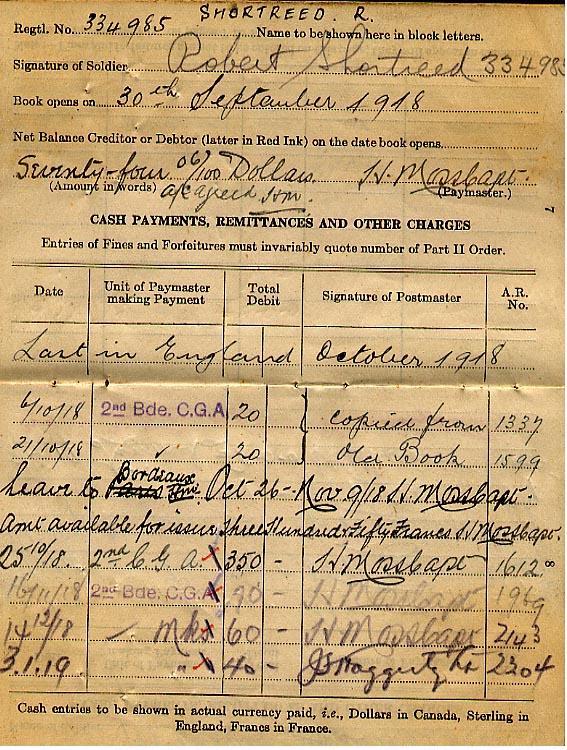 SHORTREED. R.
Regtl. No. 334985 Name to be shown here in block letters.
Signature of Soldier Robert Shortreed 334985
Book opens on 30th September 1918
Net Balance Creditor or Debtor (latter in Red Ink) on the date book opens
Seventy-four 06/100 Dollars H. Moss Capt.
(Amount in words) a/c agreed HM. (Paymaster.)
7
CASH PAYMENTS, REMITTANCES AND OTHER CHARGES
Entries of Fines and Forfeitures must invariably quote number of Part II Order.
Date Unit of Paymaster making Payment Total Debit Signature of Postmaster A.R. No.
Last in England October 1918
6/10/18 2nd Bde. C.G.A 20 copied from 1337
21/10/18 20 Old Book 1599
Leave to Bordeaux Paris HM. Oct 26 - Nov 9/18 H. Moss Capt.
Amt available for issue Three Hundred & Fifty Francs H Moss Capt.
25/10/18. 2nd C G A 350 - H Moss Capt 1612
16/11/18 2nd Bde. C.G.A H Moss Capt 1969
14/12/18 60 - H Moss Capt 2143
3.1.19 " 40 - Haggerty 2204
Cash entries to be shown in actual currency paid, i.e., Dollars in Canada, Sterling in
England, Francs in France.